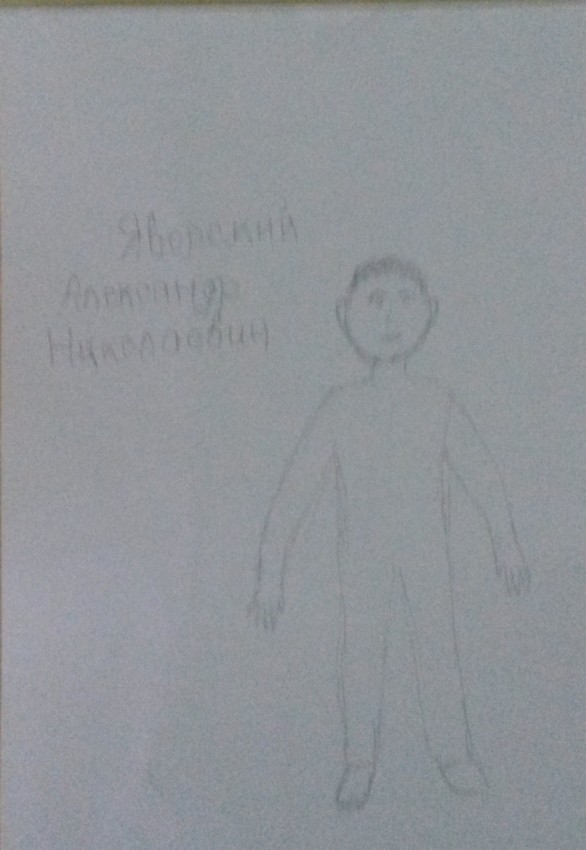 Яворский
Александр
Николаевич